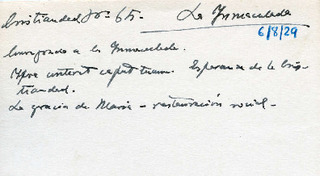 Cristiandad Nº 65. La Inmaculada
6/8/29
Consagrado a la Inmaculada.
Ipsa conteret caput tuum. Esperanza de la Cris-
tiandad.
La gracia de María - restauración social -